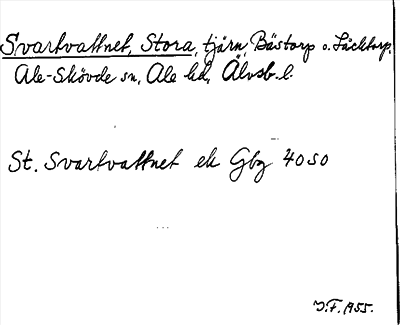 Svartvattnet, Stora, tjärn, Bästorp o. Låcktorp.
Ale-Skövde sn, Ale hd, Älvsb. l.
St. Svartvattnet ek Gbg 4050
J.F. 1955.